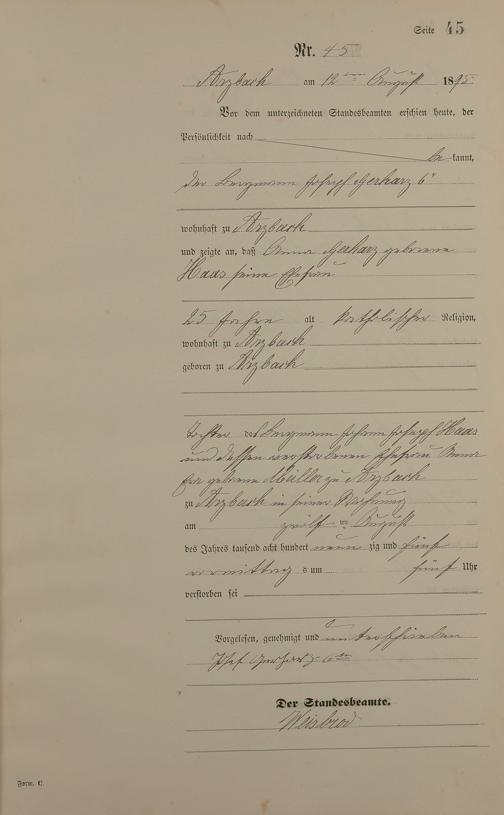 Seite 45
Nr. 45
Arzbach am 12ten August 1895
Vor dem unterzeichneten Standesbeamten erschien heute, der
Persönlichkeit nach
be kannt,
der Bergmann Joseph Gerharz 6r
wohnhaft zu Arzbach
und zeigte an, daß Anna Gerharz geborene
Haas seine Ehefrau
25 Jahre alt katholischer Religion,
wohnhaft zu Arzbach
geboren zu Arzbach
Tochter des Bergmann Johann Joseph Haas
und dessen verstorbenen Ehefrau Anna
geborene Müller zu Arzbach
zu Arzbach in seiner Wohnung
am zwölften August
des Jahres tausend acht hundert neun zig und fünf
vormittag s um fünf Uhr
verstorben sei
Vorgelesen, genehmigt und unterschrieben
Josef Gerharz 6ter
Der Standesbeamte.
Weisbrod
Form. C.